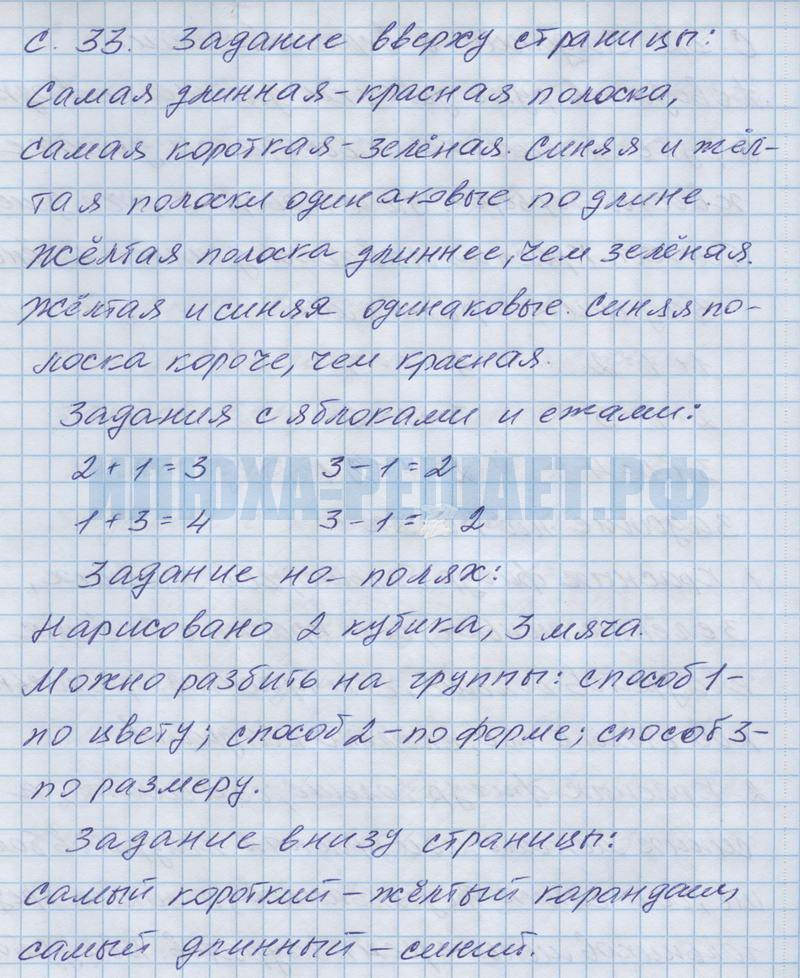 с. 33. Задание вверху страницы:
Самая длинная - красная полоска,
самая короткая - зелёная. Синяя и жёл-
тая полоски одинаковые по длине.
Жёлтая полоска длиннее, чем зелёная.
Жёлтая и синяя одинаковые. Синяя по-
лоска короче, чем красная.
Задания с яблоками и ежами:
2 + 1 = 3 3 - 1 = 2
ИЛЮХА-РЕШАЕТ.РФ
1 + 3 = 4 3 - 1 = 2
Задание на полях:
Нарисовано 2 кубика, 3 мяча.
Можно разбить на группы: способ 1 -
по цвету; способ 2 - по форме; способ 3 -
по размеру.
Задание внизу страницы:
самый короткий - жёлтый карандаш,
самый длинный - синий.